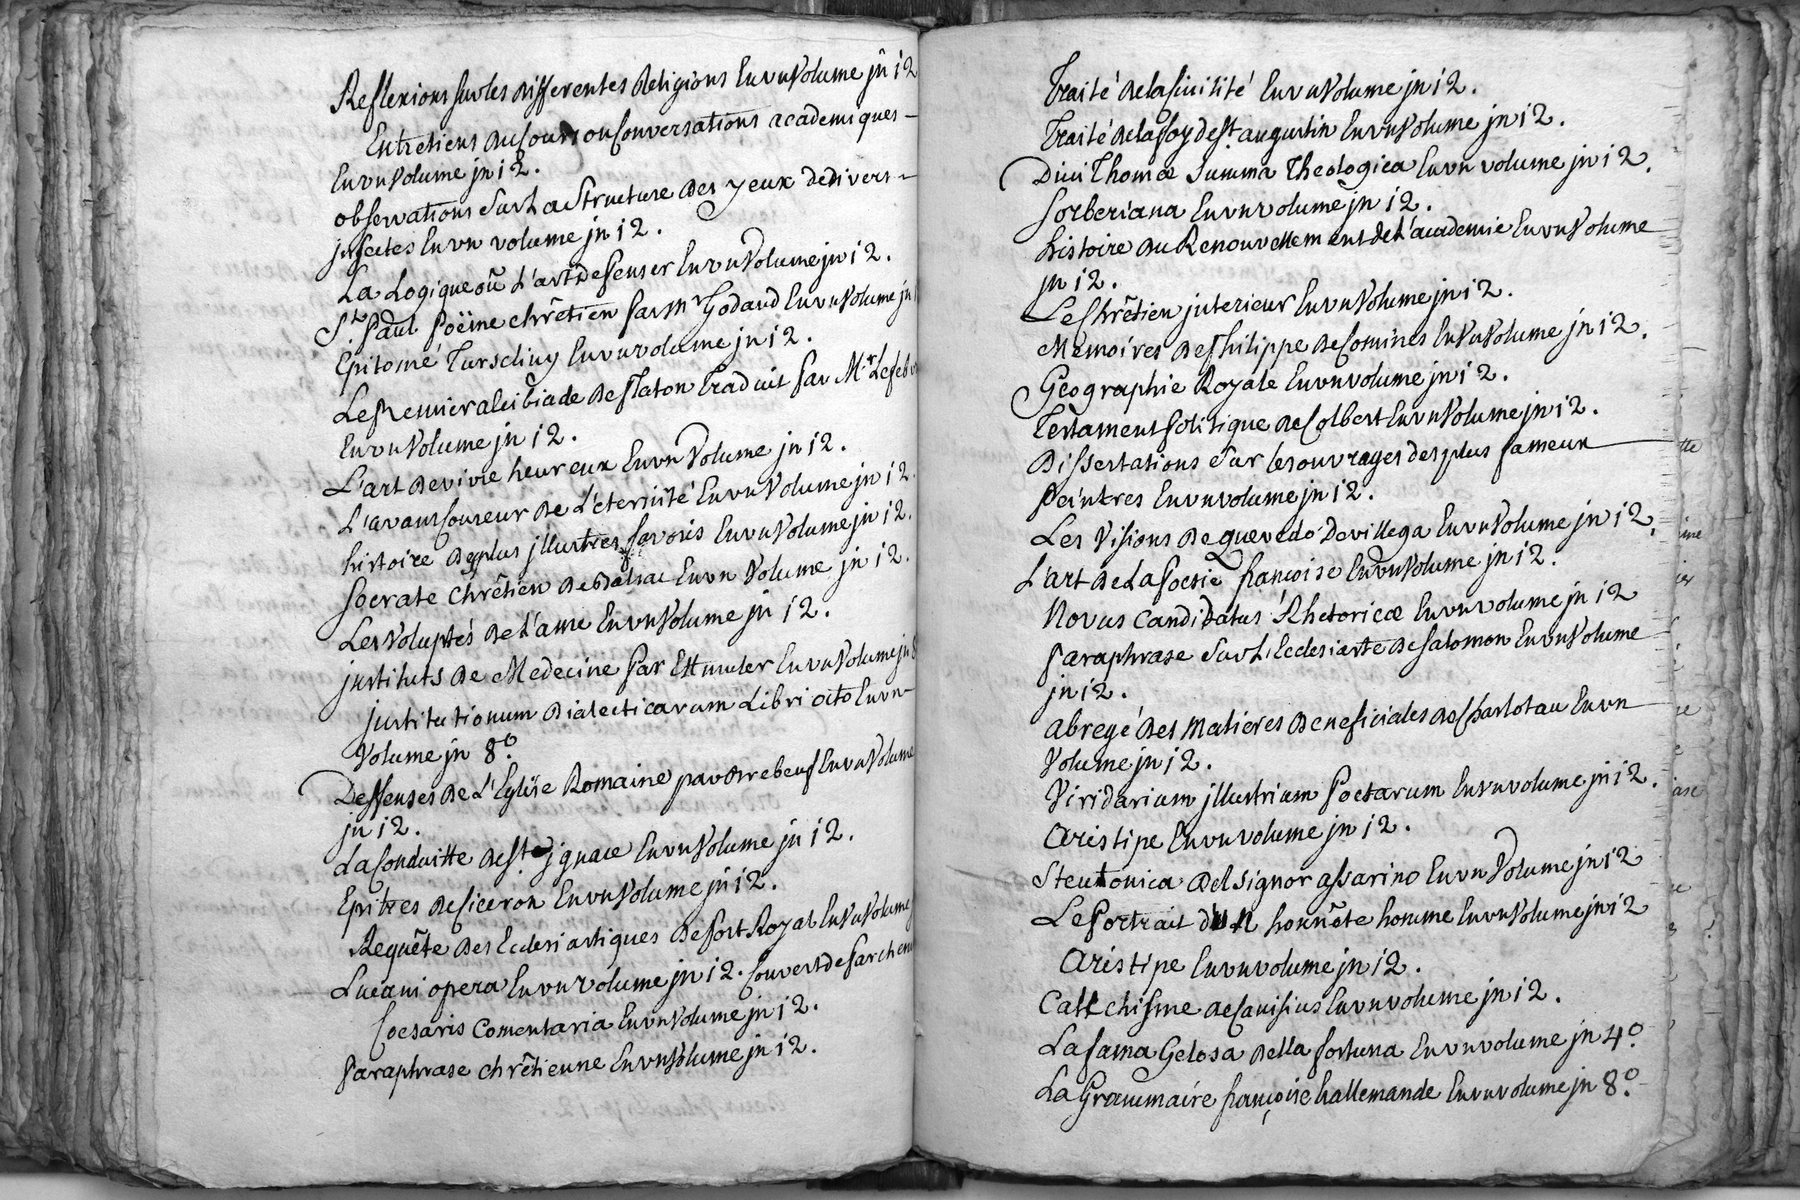 Reflexions sur les differentes Religions En vn Volume jn 12
Entretiens du Cours ou Conversations academiques
En vn Volume jn 12.
observations sur La Structure des yeux de divers
jnsectes En vn volume jn 12.
La Logique ou L'art de Penser En vn Volume jn 12.
St. Paul Poëme chrêtien Par Mr Godaud En vn Volume jn
Epitomé Turseliny En vn volume jn 12.
Le Premier alcibiade de Platon Traduit Par Mr. Lefeb
En vn Volume jn 12.
L'art de vivre heureux En vn Volume jn 12.
L'avantcoureur de L'eternité En vn Volume jn 12.
histoire de plus jllustres favoris En vn Volume jn 12.
Socrate chrêtien de Balzac En vn Volume jn 12.
Les Voluptés de L'ame En vn Volume jn 12.
justituts de Medecine Par Ettmuler En vn Volume jn 8
justitutionum dialecticarum Libri octo En vn
Volume jn 8o.
Deffenses de L'Eglise Romaine par En vn Volume
jn 12.
La Conduitte de St. jgnace En vn Volume jn 12.
Epitres de Ciceron En vn Volume jn 12.
Requête des Ecclesiastiques de Port Royal En vn Volume
Lucani opera En vn volume jn 12. Couvert de Parchem
Coesaris Comentaria En vn Volume jn 12.
Paraphrase chrêtienne En vn Volume jn 12.
Traité de la Civilité En vn Volume jn 12.
Traité de la foy de St. augustin En vn Volume jn 12.
Divi Thomæ Summa Theologica En vn volume jn 12.
Sorberiana En vn volume jn 12.
histoire du Renouvellement de L'academie En vn Volume
jn 12.
Le Chrêtien jnterieur En vn Volume jn 12.
Memoires de Philippe de Comines En vn Volume jn 12.
Geographie Royale En vn volume jn 12.
Testament Politique de Colbert En vn Volume jn 12.
Dissertations sur les ouvrages des plus fameux
Peintres En vn volume jn 12.
Les Visions de Quevedo de villega En vn Volume jn 12.
L'art de La Poesie françoise En vn Volume jn 12.
Novus Candidatus Rhetoricæ En vn volume jn 12
Paraphrase sur L'Ecclesiaste de Salomon En vn Volume
jn 12.
abregé des Matieres Beneficiales de Charlotau En vn
Volume jn 12.
Viridarium jllustrium Poetarum En vn volume jn 12.
Aristipe En vn volume jn 12.
Steutonica del signor assarino En vn Volume jn 12
Le Portrait d'un honnête homme En vn Volume jn 12
Aristipe En vn volume jn 12.
Catechisme de Canisius En vn volume jn 12.
La fama Gelosa della fortuna En vn volume jn 4o.
La Grammaire françoise hallemande En vn volume jn 8o.